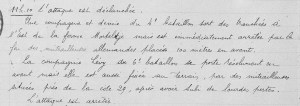 11h.10 L'attaque est déclenchée.
Une compagnie et demie du 2e bataillon sort des tranchées à
l'est de la ferme et est immédiatement arrêtée par le
feu des mitrailleuses allemandes placées 100 mètres en avant.
La compagnie du 5e bataillon se porte résolument en
avant mais elle est aussi fixée au terrain, par des mitrailleuses
près de la cote 29, après avoir subi de lourdes pertes.
L'attaque est arrêtée